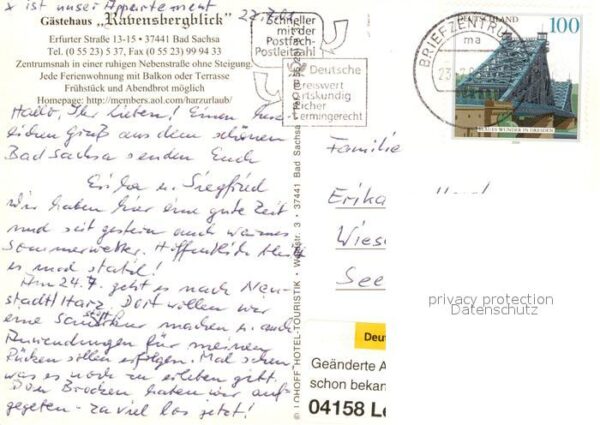 x ist unser Appartement
22.7.01
Gästehaus "Ravensbergblick"
Erfurter Straße 13-15 • 37441 Bad Sachsa
Tel. (0 55 23) 5 37, Fax (0 55 23) 99 94 33
Zentrumsnah in einer ruhigen Nebenstraße ohne Steigung.
Jede Ferienwohnung mit Balkon oder Terrasse
Frühstück und Abendbrot möglich
Homepage: http://members.aol.com/harzurlaub/
Hallo, Ihr Lieben! Einen herz-
lichen Gruß aus dem schönen
Bad Sachsa senden Euch
Erika u. Siegfried
Wir haben hier eine gute Zeit
und seit gestern auch warmes
Sommerwetter. Hoffentlich bleibt
es mal stabil!
Am 24.7. geht es nach Neu-
stadt/Harz. Dort wollen wir
eine machen u. auch
Anwendungen für meinen
Rücken sollen erfolgen. Mal sehen,
was es noch zu erleben gibt.
Den Brocken haben wir auf-
gegeben - zu viel los jetzt!
© LOHOFF HOTEL-TOURISTIK • 3 • 37441 Bad Sachsa
Schneller
mit der
Postfach-
Postleitzahl
Deutsche
Preiswert
Ortskundig
Sicher
Termingerecht
BRIEFZENTRUM
ma
23
DEUTSCHLAND
100
BLAUES WUNDER IN DRESDEN
Familie
Erika
Wiese
See
privacy protection
Datenschutz
Deu
Geänderte A
schon bekan
04158 Le